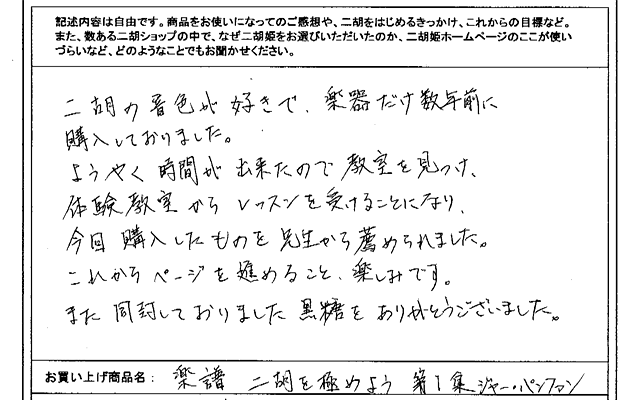 記述内容は自由です。商品をお使いになってのご感想や、二胡をはじめるきっかけ、これからの目標など。
また、数ある二胡ショップの中で、なぜ二胡姫をお選びいただいたのか、二胡姫ホームページのここが使い
づらいなど、どのようなことでもお聞かせください。
二胡の音色が好きで、楽器だけ数年前に
購入しておりました。
ようやく時間が出来たので教室を見つけ、
体験教室からレッスンを受けることになり、
今回購入したものを先生から薦められました。
これからページを進めること、楽しみです。
また同封しておりました黒糖をありがとうございました。
お買い上げ商品名： 楽譜 二胡を極めよう 第1集 ジャー・パンファン